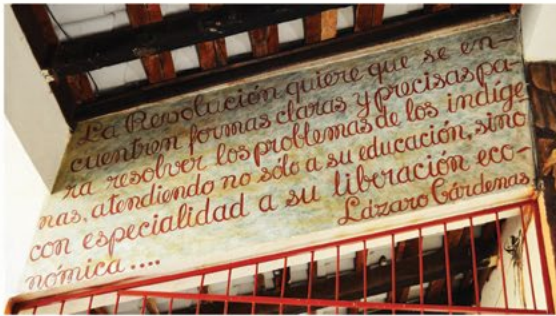 La Revolución quiere que se en-
cuentren formas claras y precisas pa-
ra resolver los problemas de los indíge-
nas, atendiendo no sólo a su educación, sino
con especialidad a su liberación eco-
nómica ....
Lázaro Cárdenas